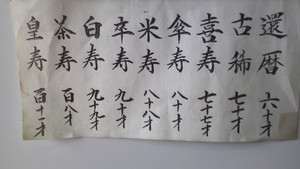 還暦 六十才
古稀 七十才
喜寿 七十七才
傘寿 八十才
米寿 八十八才
卒寿 九十才
白寿 九十九才
茶寿 百八才
皇寿 百十一才